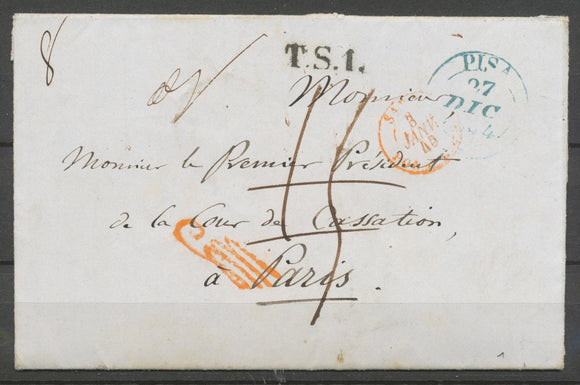 8
T.S.1.
PISA
27
DIC
Monsieur,
8
JANV
45
Monsieur le Premier Président
de la Cour de Cassation,
à Paris.
15